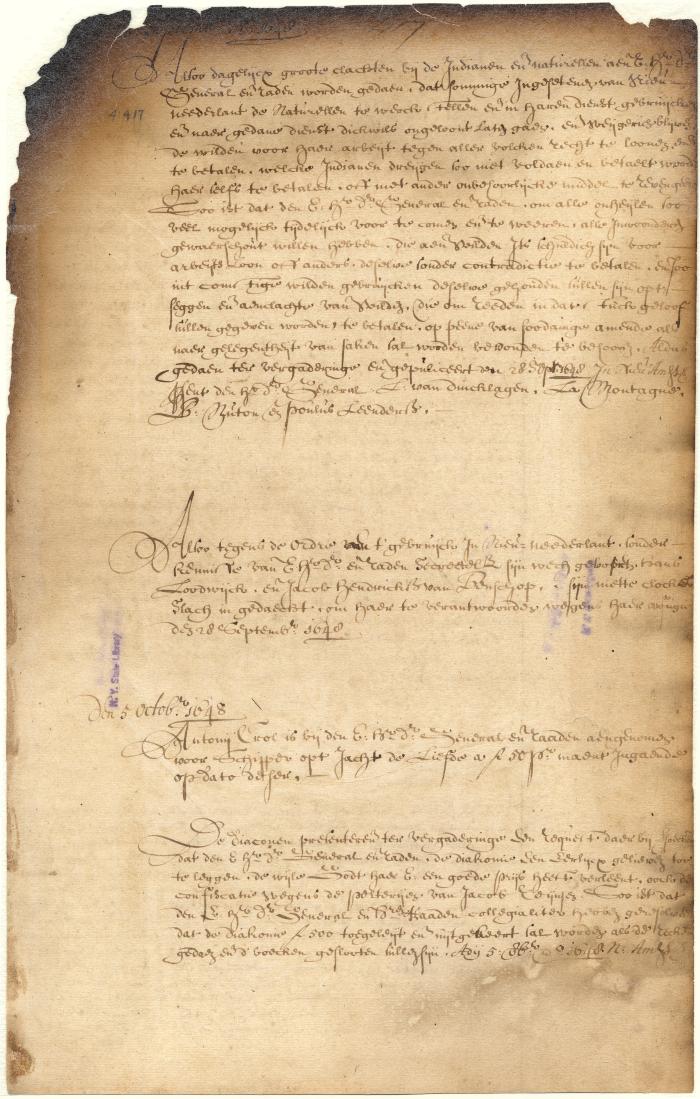 Alsoo dagelijcx groote clachten bij de Indianen en naturellen aen E. Hr
Generael en raden worden gedaen, dat sommige Ingesetenen van Nieu
neederlant de Naturellen te werck stellen en in haren dienst gebruijcken
en naer gedane dienst dickwils ongeloont laten gaen, en weijgeren
de wilden voor haer arbeijt tegen aller volcken recht te loonen, en
te betalen, welcke Indianen dreijgen soo niet voldaen en betaelt worden
haer selfs te betalen, off met ander onbehoorlijcke middel te
Soo ist dat den E. Hr Dr Generael en raden, om alle onheijlen soo
veel mogelijck tijdelijck voor te comen en te weeren, alle Inwoonderen
gewaerschout willen hebben, die aen wilden Its schuldich sijn voor
arbeijts loon off anders, deselve sonder contradictie te betalen, en soo
int comstige wilden gebruijcken deselve gehouden sullen sijn opt
seggen en aenclachte van wilden, (die om reeden in dat stuck geloof
sullen gegeven worden) te betalen, op peene van soodanige amende als
naer gelegentheijt van saken sal worden bevonden te behooren, Aldus
gedaen ter vergaderinge en gepubliceert den 28 Sept. 1648 In Nieu Amst
Pent den Hr Dr Generael L. van dincklagen, La Montagne,
B. Nuton en Poulus Leenderss.
Alsoo tegens de Ordre van t' gebruijck In Nieu-neederlant, sonder
kennisse van E. Hr Dr en raden secreetelck sijn wech gevoert, Frans
Loodwijck, en Jacob Hendrickss van Benschop, sijn mette clocke
slach in gedaecht, om haer te verantwoorden wegens haer
den 28 Septembr 1648.
Den 5 Octobr 1648
Antonij Crol is bij den E. Hr Dr Generael en raaden aengenomen
voor Schipper opt Jacht de Liefde a f 50 pr maent Ingaende
op dato deser.
De diaconen presenteren ter vergaderinge een request, daer bij
dat den E Hr Dr Generael en raden, de diakonie een Eerlijcx gelieven toe
te leggen, de wijle Godt haer E. een goede prijs heeft verleent, oock de
Confiscatie wegens de pelterijen van Jacob Reijnsen Soo ist dat
den E. Hr Dr Generael en Raaden collegialiter hebben
dat de diakonie f 500 toegeleijt en uijtgekeert sal worden als de
gedaen en d' boecken geslooten sullen sijn, Adij 5 8br Ao 1648 N. Amst
4 417
N.Y. State Library